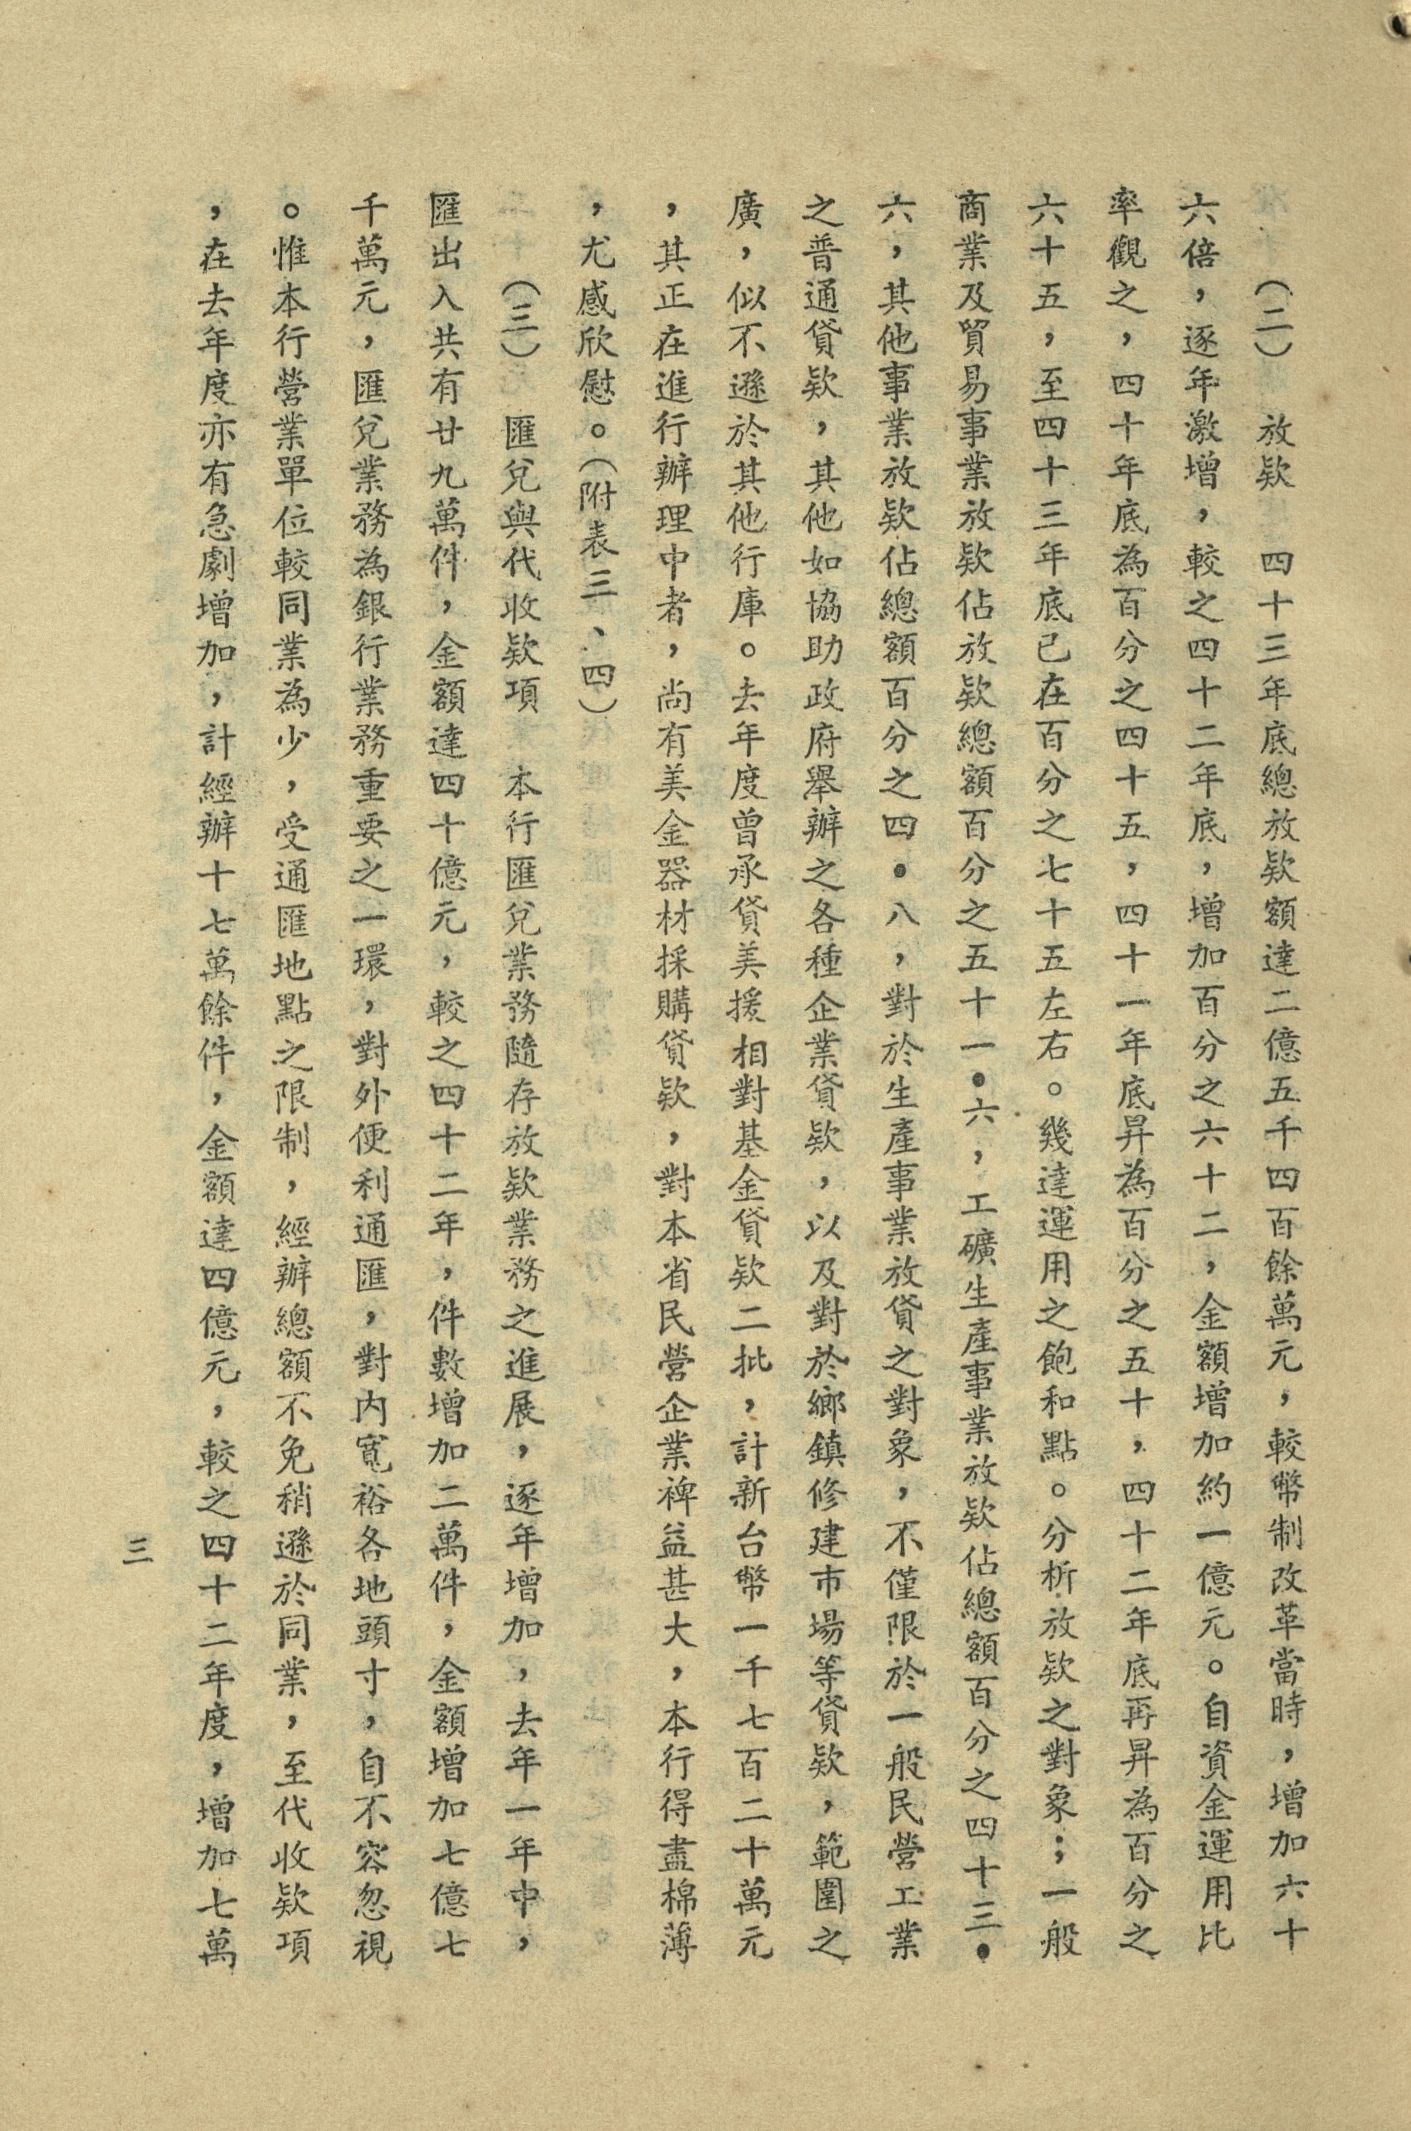 （二）　放欵　四十三年底總放欵額達二億五千四百餘萬元，較幣制改革當時，增加六十
六倍，逐年激增，較之四十二年底，增加百分之六十二，金額增加約一億元。自資金運用比
率觀之，四十年底為百分之四十五，四十一年底昇為百分之五十，四十二年底再昇為百分之
六十五，至四十三年底已在百分之七十五左右。幾達運用之飽和點。分析放欵之對象；一般
商業及貿易事業放欵佔放欵總額百分之五十一•六，工礦生產事業放欵佔總額百分之四十三•
六，其他事業放欵佔總額百分之四•八，對於生產事業放貸之對象，不僅限於一般民營工業
之普通貸欵，其他如協助政府舉辦之各種企業貸欵，以及對於鄉鎮修建市場等貸欵，範圍之
廣，似不遜於其他行庫。去年度曾承貸美援相對基金貸欵二批，計新台幣一千七百二十萬元
，其正在進行辦理中者，尚有美金器材採購貸欵，對本省民營企業裨益甚大，本行得盡棉薄
，尤感欣慰。（附表三、四）
（三）　匯兌與代收欵項　本行匯兌業務隨存放欵業務之進展，逐年增加，去年一年中，
匯出入共有廿九萬件，金額達四十億元，較之四十二年，件數增加二萬件，金額增加七億七
千萬元，匯兌業務為銀行業務重要之一環，對外便利通匯，對内寬裕各地頭寸，自不容忽視
。惟本行營業單位較同業為少，受通匯地點之限制，經辦總額不免稍遜於同業，至代收欵項
，在去年度亦有急劇增加，計經辦十七萬餘件，金額達四億元，較之四十二年度，增加七萬
三